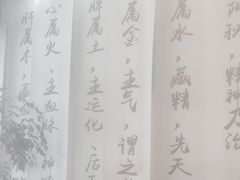 阳秘，精神乃治
属水，藏精，先天
属金，主气，谓之
脾属土，主运化，后天
心属火，主血脉，神
肝属木，藏